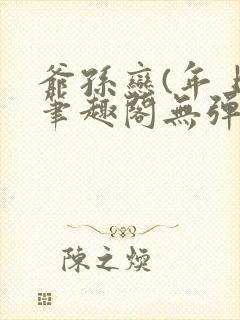 爺孫戀(年上
筆趣閣無彈
陳之煥